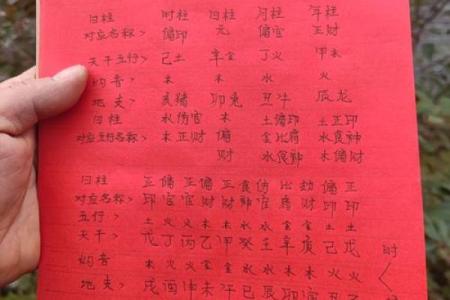 日柱 时柱 日柱 月柱 年柱
对应名称> 偏印 元 偏官 正财
天干五行> 己土 辛金 丁火 甲木
纳音> 木 木 水 火
地支> 亥猪 卯兔 丑牛 辰龙
日柱 水伤官 木 土偏印 土正印
对应五行名称> 木正财 偏 金比肩 水食神
财 水食神 木偏财
日柱 正 偏 正 偏 正 食 伤 比 劫 偏 正
对应名称> 印 官 官 财 财 神 官 肩 财 印 印
五行> 土 火 火 木 木 水 水 金 金 土 土
天干> 戊 丁 丙 乙 甲 癸 壬 辛 庚 己 戊 时
纳音> 木 火 火 金 金 水 水 金 金 木 火
地支> 戌 酉 申 未 午 巳 辰 卯 寅